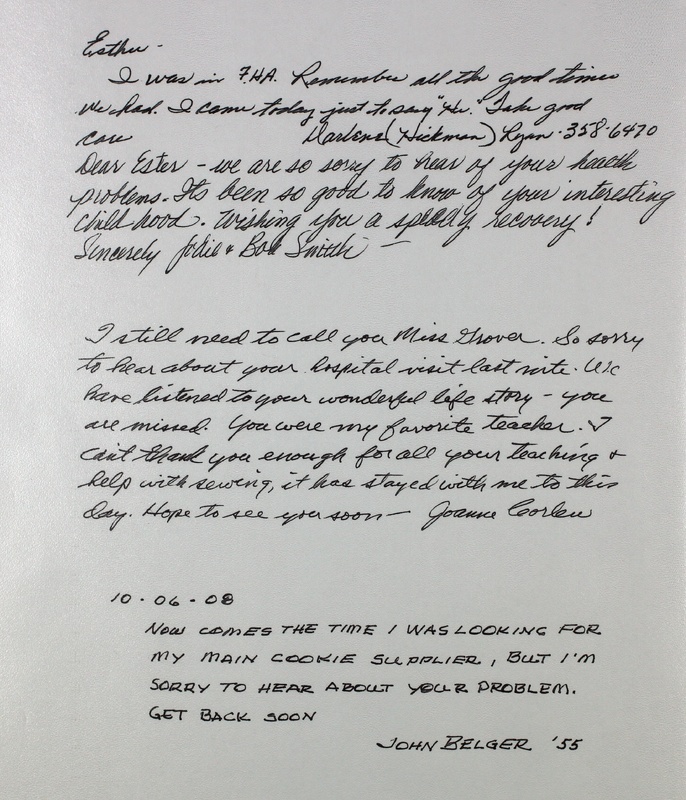 Esther -
I was in F.H.A. Remember all the good times
we had. I came today just to say "Hi." Take good
care Darlene (Hickman) Ryan - 358-6470
Dear Ester - we are so sorry to hear of your health
problems. Its been so good to know of your interesting
child hood. Wishing you a speedy recovery!
Sincerely Jodie & Bob Smith
I still need to call you Miss Grover. So sorry
to hear about your hospital visit last nite. We
have listened to your wonderful life story - you
are missed. You were my favorite teacher. I
can't thank you enough for all your teaching &
help with sewing, it has stayed with me to this
day. Hope to see you soon - Joanne
10-06-08
NOW COMES THE TIME I WAS LOOKING FOR
MY MAIN COOKIE SUPPLIER, BUT I'M
SORRY TO HEAR ABOUT YOUR PROBLEM.
GET BACK SOON
JOHN BELGER '55